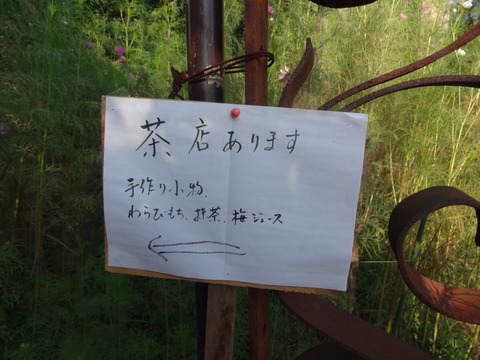 茶店あります
手作り小物、
わらびもち、抹茶、梅ジュース